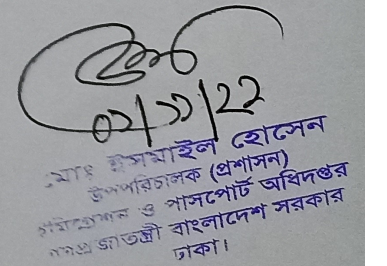 ০২/১১/22
মোঃ ইসমাইল হোসেন
উপপরিচালক (প্রশাসন)
ও পাসপোর্ট অধিদপ্তর
গণপ্রজাতন্ত্রী বাংলাদেশ সরকার
ঢাকা।